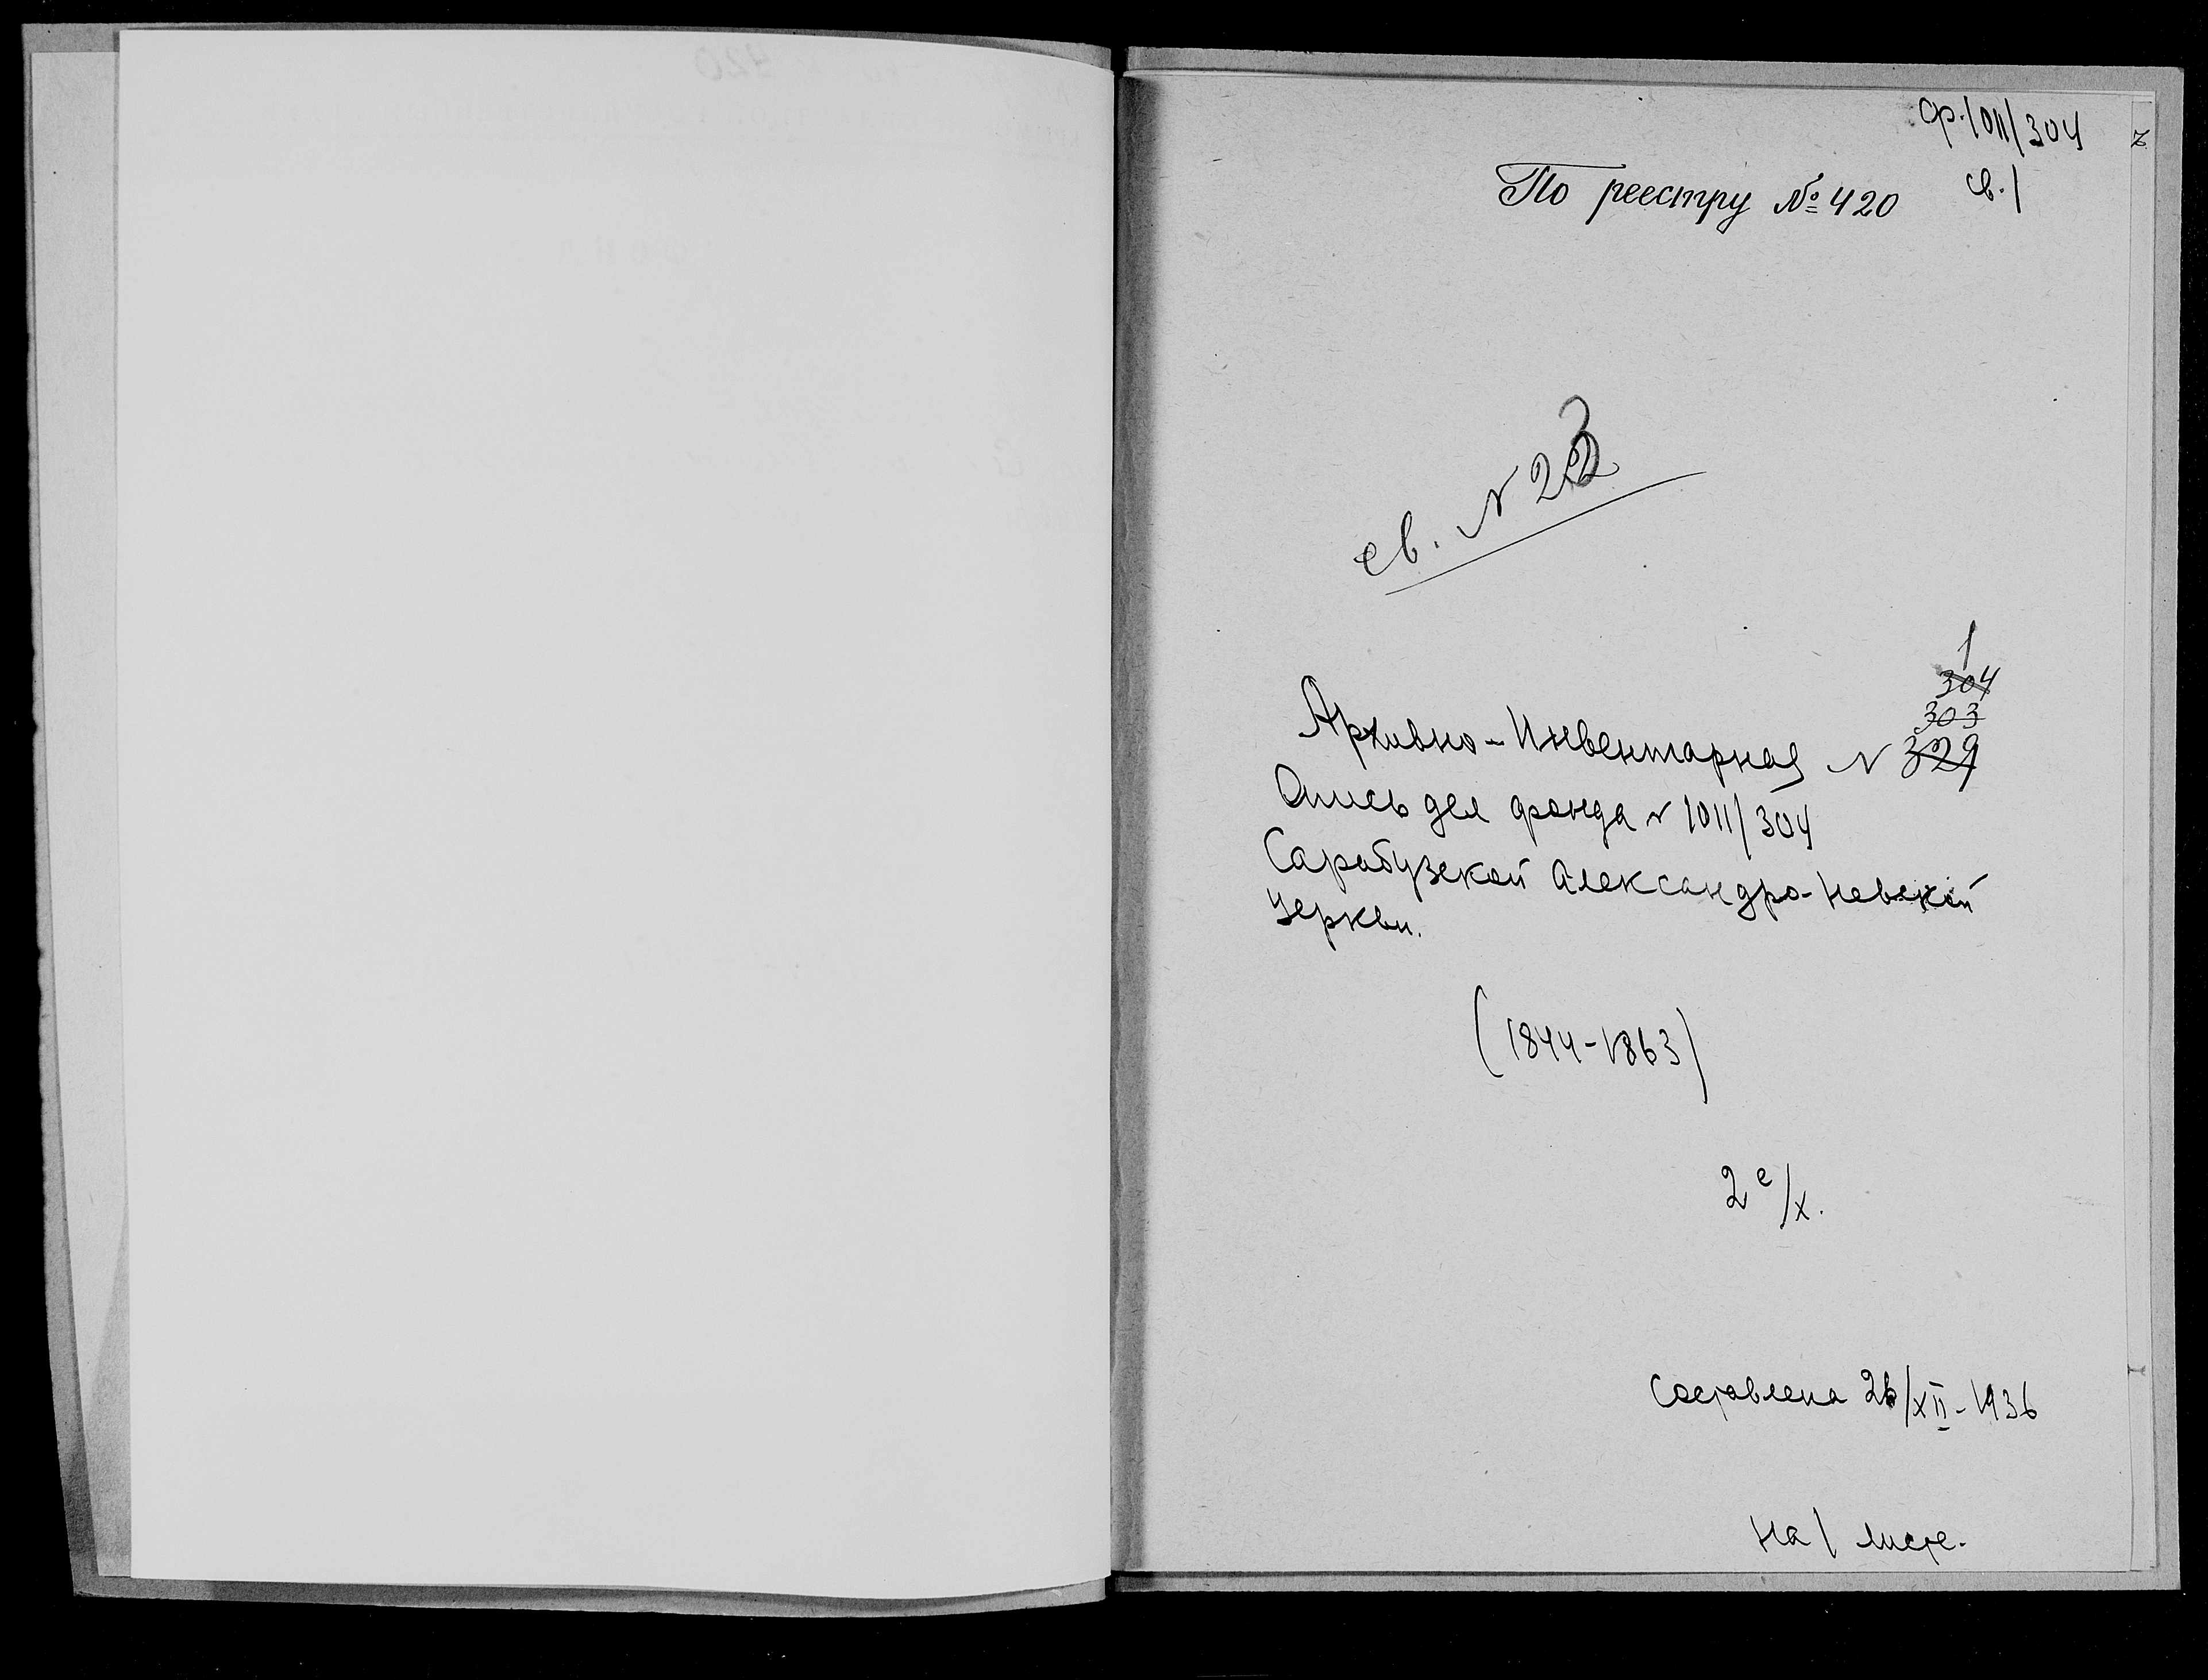 ф. 1011/304
св. 1
По реестру № 420
св. N 23
1
304
303
Архивно-Инвентарная N 329
Опись дел фонда N 1011/304
Сарабузской Александро-Невской
Церкви.
(1844-1863)
2 е/х.
Составлена 26/XII-1936
на 1 листе.